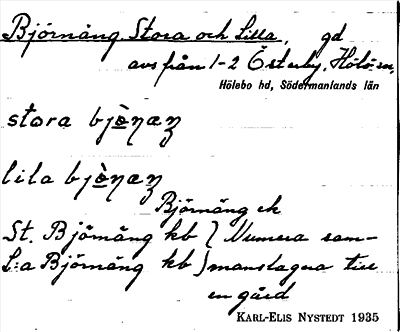 Björnäng Stora och Lilla, gd
avs från 1-2 Österby, Hölö sn,
Hölebo hd, Södermanlands län
stora bjò̱ŋæŋ
lila bjò̱ŋæŋ
Björnäng ek
St. Björnäng kb } Numera sam-
L:a Björnäng kb } manslagna till
en gård
KARL-ELIS NYSTEDT 1935